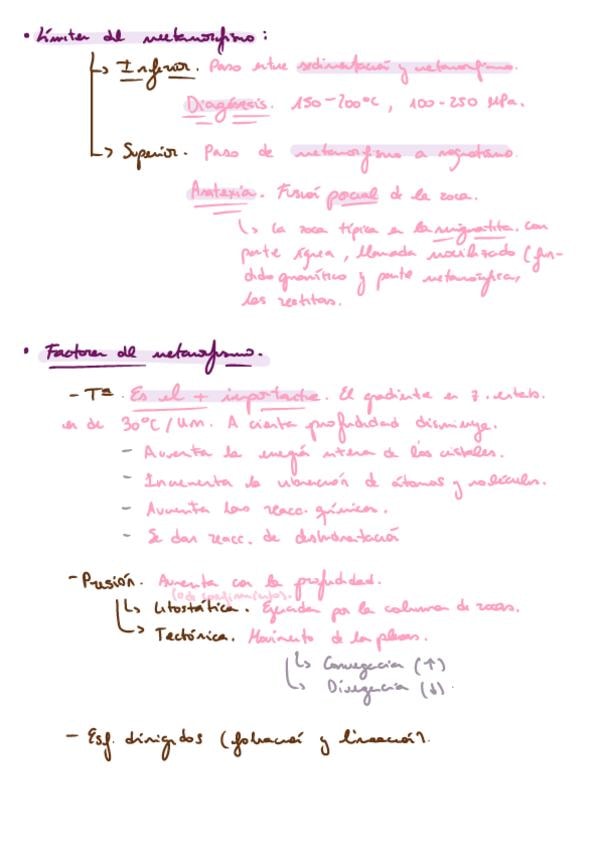 • Límites del metamorfismo:
↳ Inferior. Paso entre sedimentación y metamorfismo.
Diagénesis. 150-200°C, 100-250 MPa.
↳ Superior. Paso de metamorfismo a magmatismo.
Anatexia. Fusión parcial de la roca.
↳ La roca típica es la migmatita, con
parte ígnea, llamada movilizado (fun-
dido granítico y parte metamórfica,
las restitas.
• Factores del metamorfismo.
- Tª. Es el + importante. El gradiente en z. estab.
es de 30°C/km. A cierta profundidad disminuye.
- Aumenta la energía interna de los cristales.
- Incrementa la vibración de átomos y moléculas.
- Aumenta las reacc. químicas.
- Se dan reacc. de deshidratación
- Presión. Aumenta con la profundidad.
↳ Litostática. Ejercida por la columna de rocas.
↳ Tectónica. Movimiento de las placas.
↳ Convergencia (↑)
↳ Divergencia (↓).
- Esf. dirigidos (foliación y lineación).